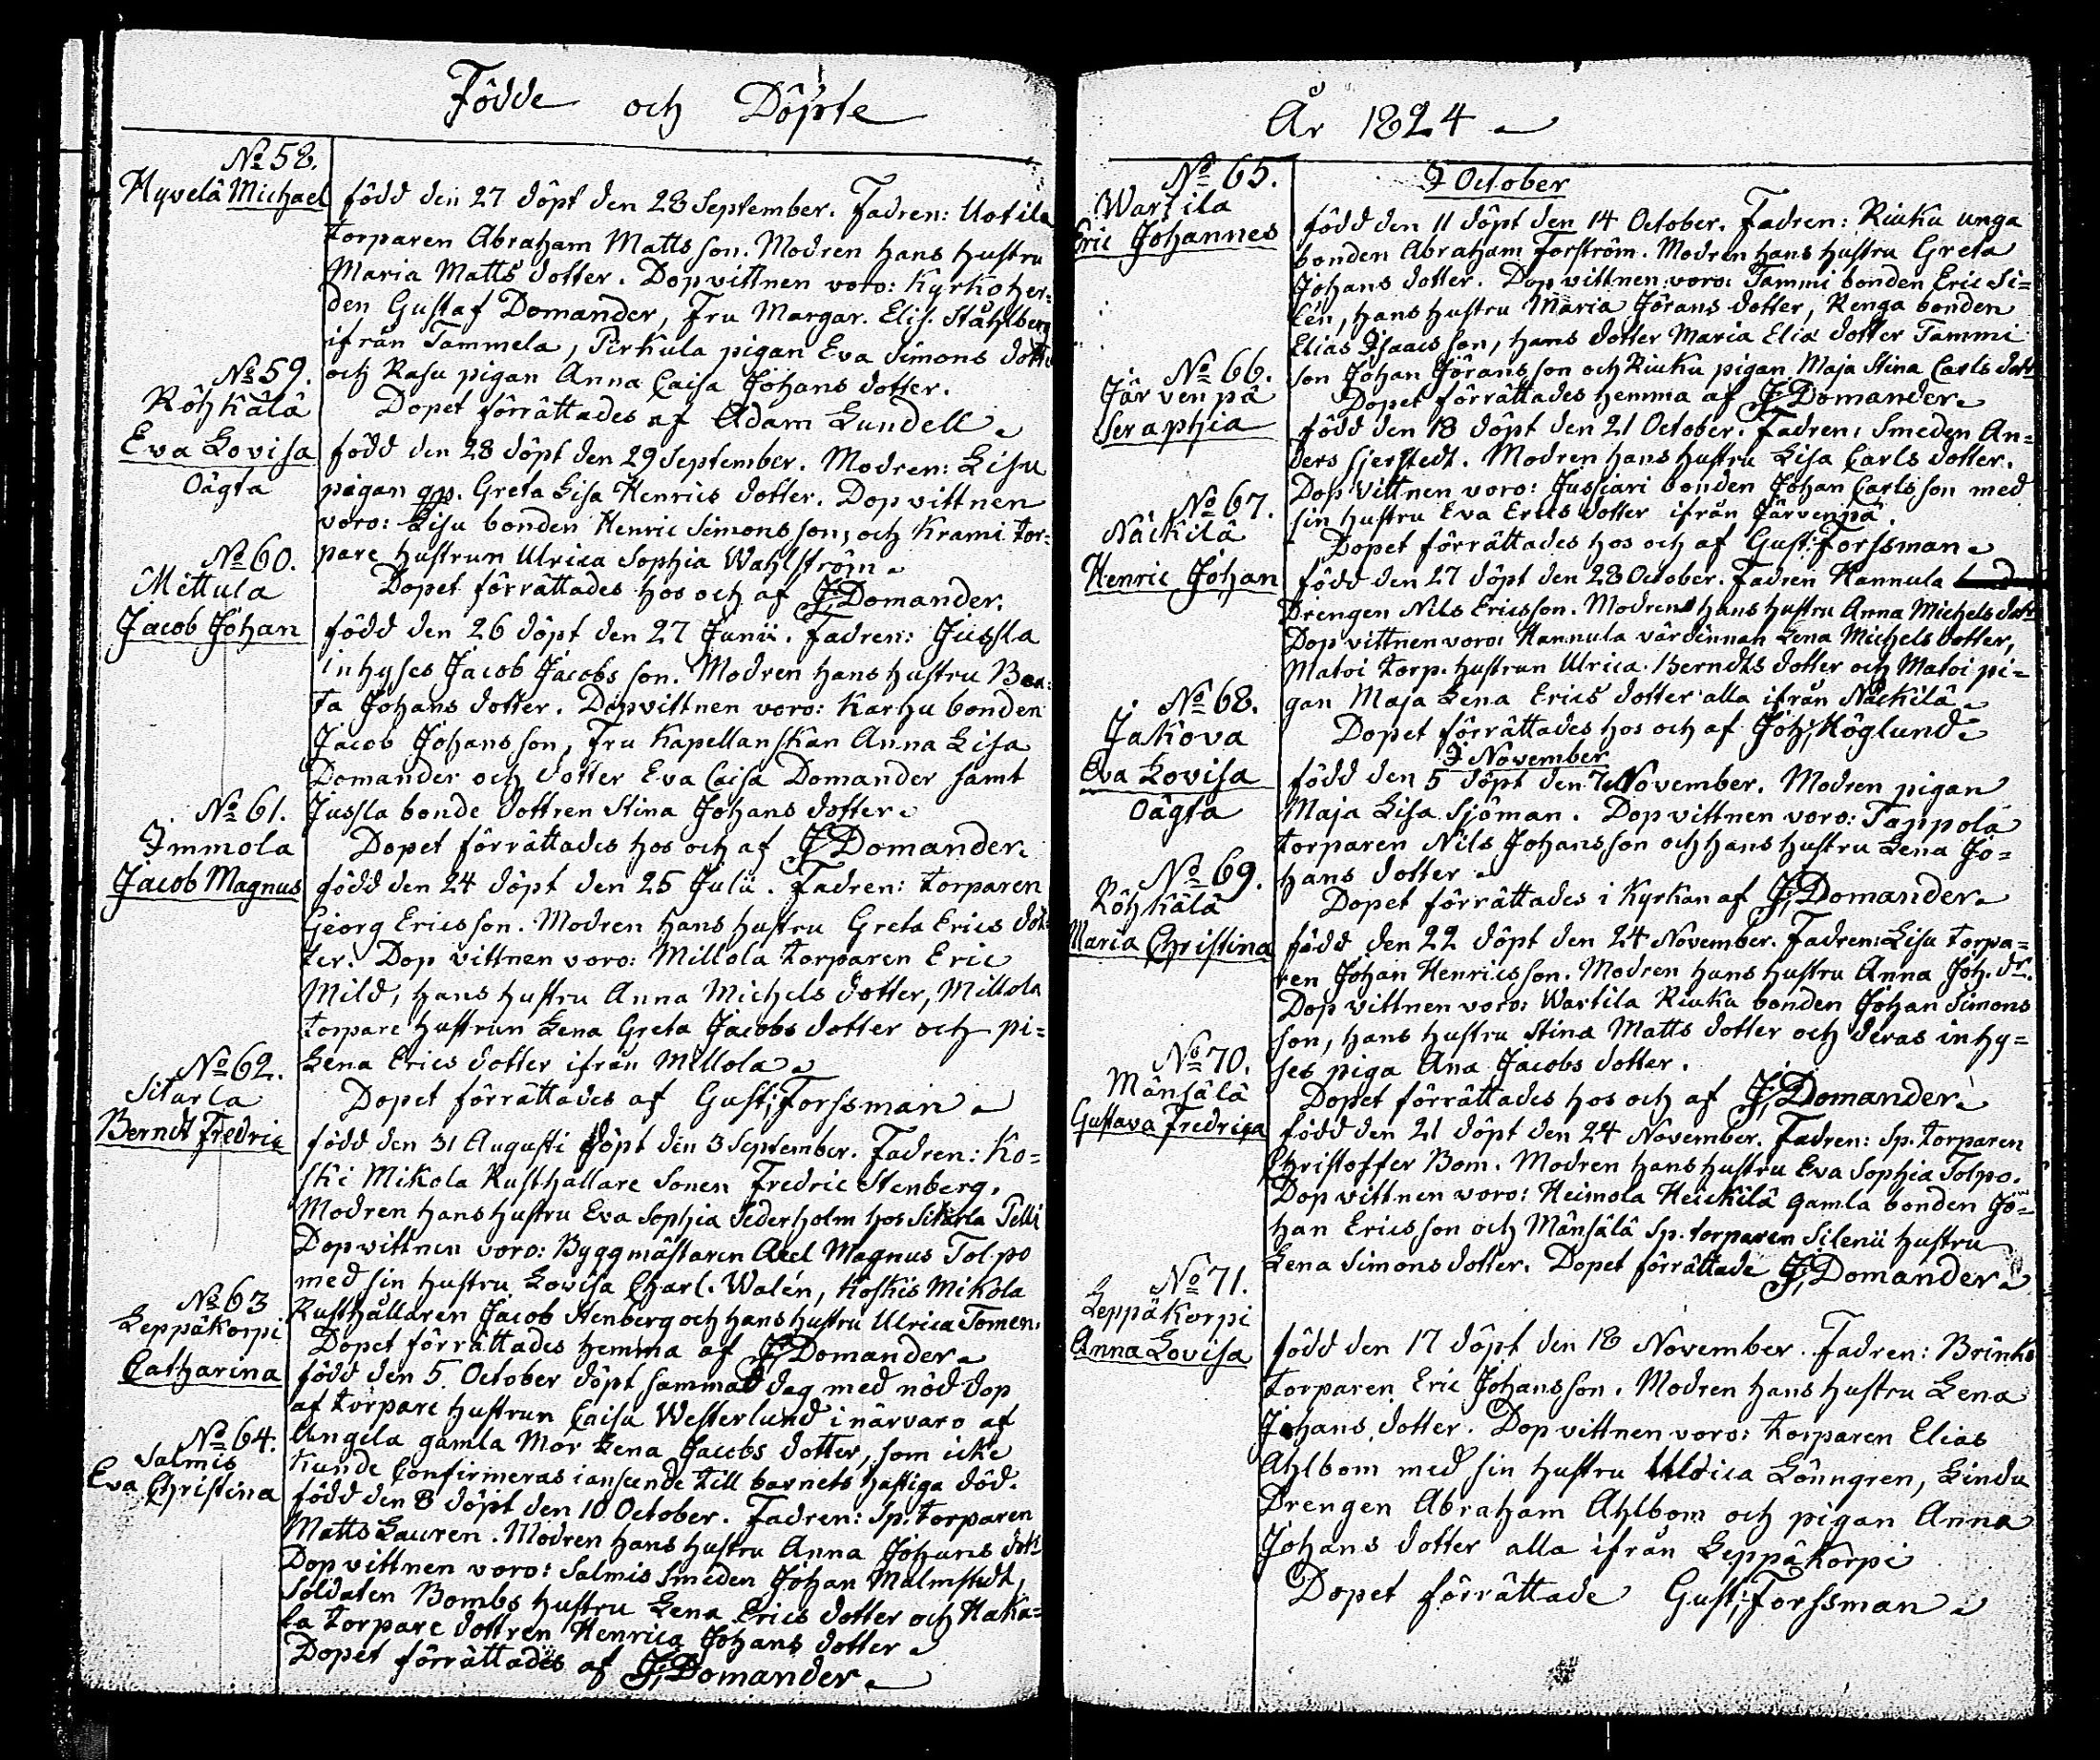 Födde och Döpte
No 58.
Hyvelä Michael
född den 27 döpt den 28 September. Fadren: Uotila
torparen Abraham Matts son. Modren hans hustru
Maria Matts dotter. Dopvittnen voro: Kyrkoher=
den Gustaf Domander, Fru Margar. Elis. Ståhlberg
ifrån Tammela, Pirkula pigan Eva Simons dotter
och Rasu pigan Anna Caisa Johans dotter.
Dopet förrättades af Adam Lundell
No 59.
Röhkälä
Eva Lovisa
Oägta
född den 28 döpt den 29 September. Modren: Lisu
pigan qp. Greta Lisa Henrics dotter. Dopvittnen
voro: Lisu bonden Henric Simons son, och Krami tor=
pare hustrun Ulrica Sophia Wahlström
Dopet förrättades hos och af J. Domander.
No 60.
Mettula
Jacob Johan
född den 26 döpt den 27 Junii. Fadren: Jussla
inhyses Jacob Jacobs son. Modren hans hustru Bea=
ta Johans dotter. Dopvittnen voro: Karhu bonden
Jacob Johans son, Fru Kapellanskan Anna Lisa
Domander och dotter Eva Caisa Domander samt
Jussla bonde dottren Stina Johans dotter
Dopet förrättades hos och af J. Domander.
No 61.
Immola
Jacob Magnus
född den 24 döpt den 25 Julii. Fadren: torparen
Georg Ericsson. Modren hans hustru Greta Erics dot=
ter. Dop vittnen voro: Millola torparen Eric
Mild, hans hustru Anna Michels dotter, Millola
torpare hustrun Lena Greta Jacobs dotter och pi=
Lena Erics dotter ifrån Millola
Dopet förrättades af Gust: Forssman
No 62.
Sitarla
Berndt Fredric
född den 31 Augusti döpt den 3 September. Fadren: Ko=
ski Mikola Rusthållare Sonen Fredric Stenberg.
Modren hans hustru Eva Sophia Sederholm hos Sitarla Pelli
Dopvittnen voro: Byggmästaren Axel Magnus Tolpo
med sin hustru Lovisa Charl. Walén, Koskis Mikola
Rusthållaren Jacob Stenberg och hans hustru Ulrica Tomen.
Dopet förrättades hemma af J. Domander
No 63
Leppäkorpi
Catharina
född den 5 October döpt samma dag med nöd dop
af torpare hustrun Caisa Westerlund i närvaro af
Angela gamla Mor Lena Jacobs dotter, som icke
kunde Confirmeras i anseende till barnets hastiga död.
No 64.
Salmis
Eva Christina
född den 8 döpt den 10 October. Fadren: Sp. torparen
Matts Lauren. Modren hans hustru Anna Johans dott
Dop vittnen voro: Salmis Smeden Johan Malmstedt,
Soldaten Bombs hustru Lena Erics dotter och Haka=
la torpare dottren Henrica Johans dotter
Dopet förrättades af J. Domander
År 1824
I October
No 65.
Wartila
Eric Johannes
född den 11 döpt den 14 October. Fadren: Riuku unga
bonden Abraham Forström. Modren hans hustru Greta
Johans dotter. Dop vittnen voro: Tammi bonden Eric Si=
lén, hans hustru Maria Jörans dotter, Renga bonden
Elias Isaacs son, hans dotter Maria Elia dotter Tammi
son Johan Jörans son och Riuku pigan Maja Stina Carls dott
Dopet förrättades hemma af J. Domander
No 66.
Järvenpä
Seraphia
född den 18 döpt den 21 October. Fadren: Smeden An=
ders Sjerstedt. Modren hans hustru Lisa Carls dotter.
Dop Vittnen voro: Jussari bonden Johan Carls son med
sin hustru Eva Erics dotter ifrån Järvenpä.
Dopet förrättades hos och af Gust: Forssman
No 67.
Näckilä
Henric Johan
född den 27 döpt den 28 October. Fadren Hannula
Drengen Nils Ericsson. Modren hans hustru Anna Michels dott
Dop vittnen voro: Hannula värdinnan Lena Michels dotter,
Matoi torp. hustrun Ulrica Berndts dotter och Matoi pi=
gan Maja Lena Erics dotter alla ifrån Näckilä
Dopet förrättades hos och af Joh: Höglund
I November
No 68.
Jakova
Eva Lovisa
Oägta
född den 5 döpt den 7 November. Modren pigan
Maja Lisa Sjöman. Dop vittnen voro: Tappola
torparen Nils Johansson och hans hustru Lena Jo=
hans dotter
Dopet förrättades i Kyrkan af J. Domander
No 69.
Röhkälä
Maria Christina
född den 22 döpt den 24 November. Fadren: Lisu torpa=
ren Johan Henricsson. Modren hans hustru Anna Joh. dr.
Dop vittnen voro: Wartila Riuku bonden Johan Simons
son, hans hustru Stina Matts dotter och deras inhy=
ses piga Ana Jacobs dotter.
Dopet förrättades hos och af J. Domander
No 70.
Mänsälä
Gustava Fredrica
född den 21 döpt den 24 November. Fadren: Sp. torparen
Christoffer Bom. Modren hans hustru Eva Sophia Tolpo.
Dop vittnen voro: Heimola Heickilä gamla bonden Jo=
han Ericsson och Mänsälä Sp. torparen Silenii hustru
Lena Simons dotter. Dopet förrättade J. Domander
No 71.
Leppäkorpi
Anna Lovisa
född den 17 döpt den 18 November. Fadren: Brinks
torparen Eric Johansson. Modren hans hustru Lena
Johans dotter. Dop vittnen voro: torparen Elias
Ahlbom med sin hustru Ulrica Lönngren, Lindu
Drengen Abraham Ahlbom och pigan Anna
Johans dotter alla ifrån Leppäkorpi
Dopet förrättade Gust: Forssman